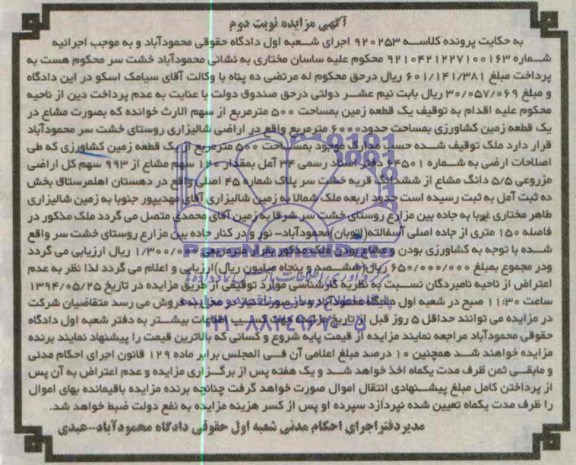 آگهی مزایده نوبت دوم
به حکایت پرونده کلاسه ۹۲۰۲۵۳ اجرای شعبه اول دادگاه حقوقی محمودآباد و به موجب اجرائیه
شماره ۹۲۱۰۴۲۱۲۲۷۱۰۰۱۶۳ محکوم علیه ساسان مختاری به نشانی محمودآباد خشت سر محکوم هست به
پرداخت مبلغ ۶۰۱/۱۴۱/۳۸۱ ریال درحق محکوم له مرتضی ده پناه با وکالت آقای سیامک اسکو در این دادگاه
و مبلغ ۳۰/۰۵۷/۰۶۹ ریال بابت نیم عشر دولتی درحق صندوق دولت با عنایت به عدم پرداخت دین از ناحیه
محکوم علیه اقدام به توقیف یک قطعه زمین بمساحت ۵۰۰ مترمربع از سهم الارث خوانده که بصورت مشاع در
یک قطعه زمین کشاورزی بمساحت حدود ۶۰۰۰ مترمربع واقع در اراضی شالیزاری روستای خشت سر محمودآباد
قرار دارد ملک توقیف شده حسب مدارک موجود بمساحت ۵۰۰ مترمربع از یک قطعه زمین کشاورزی که طی
اصلاحات ارضی به شماره ۶۴۵۰۱ دفتر اسناد رسمی ۳۴ آمل بمقدار ۱۲۰ سهم مشاع از ۹۹۳ سهم کل اراضی
مزروعی ۵/۵ دانگ مشاع از ششدانگ قریه خشت سر پلاک شماره ۴۵ اصلی واقع در دهستان اهلمرستاق بخش
ده ثبت آمل به ثبت رسیده است حدود اربعه ملک شمالا به زمین شالیزاری آقای مهدیپور جنوبا به زمین شالیزاری
طاهر مختاری غربا به جاده بین مزارع روستای خشت سر شرقا به زمین آقای محمدی متصل می گردد ملک مذکور در
فاصله ۱۵۰ متری از جاده اصلی آسفالته (اتوبان) محمودآباد- نور و در کنار جاده بین مزارع روستای خشت سر واقع
شده با توجه به کشاورزی بودن و مشاع بودن ملک مذکور بقرار مترمربعی ۱/۳۰۰/۰۰۰ ریال ارزیابی می گردد
ودر مجموع بمبلغ ۶۵۰/۰۰۰/۰۰۰ ریال (ششصد و پنجاه میلیون ریال) ارزیابی و اعلام می گردد لذا نظر به عدم
اعتراض از ناحیه نامبردگان نسبت به نظریه کارشناسی موارد توقیفی از طریق مزایده در تاریخ ۱۳۹۴/۰۵/۲۵
ساعت ۱۱:۳۰ صبح در شعبه اول دادگاه محمودآباد و از صورت به مزایده فروش می رسد متقاضیان شرکت
در مزایده می توانند حداقل ۵ روز قبل از تاریخ مزایده جهت کسب اطلاعات بیشتر به دفتر شعبه اول دادگاه
حقوقی محمودآباد مراجعه نمایند مزایده از قیمت پایه شروع و کسانی که بالاترین قیمت را پیشنهاد نمایند برنده
مزایده خواهند شد همچنین ۱۰ درصد مبلغ اعلامی آن فی المجلس برابر ماده ۱۲۹ قانون اجرای احکام مدنی
و مابقی ثمن ظرف مدت یکماه اخذ خواهد شد و یک هفته پس از برگزاری مزایده و عدم اعتراض به آن پس
از پرداختن کامل مبلغ پیشنهادی انتقال اموال صورت خواهد گرفت چنانچه برنده مزایده باقیمانده بهای اموال
را ظرف مدت یکماه تعیین شده نپردازد سپرده او پس از کسر هزینه مزایده به نفع دولت ضبط خواهد شد.
مدیردفتراجرای احکام مدنی شعبه اول حقوقی دادگاه محمودآباد---عبدی